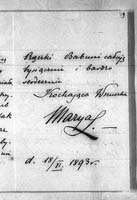 Rączki Babuni całuję
tysiącznie i bardzo
serdecznie
Kochająca Wnuczka
Marya
d. 18/VI 1893 r.